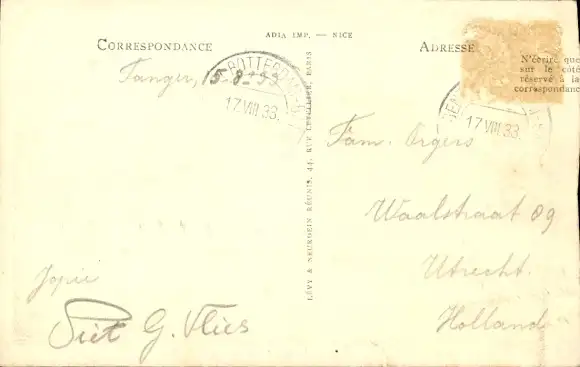 ADIA IMP. — NICE
CORRESPONDANCE
ADRESSE
N'écrire que
sur le côté
réservé à la
correspondance
Tanger,
ROTTERDAM
17 VIII 33.
17 VIII 33.
LÉVY & NEURDEIN RÉUNIS, 44, RUE LETELLIER, PARIS
Fam. Orgers
Waalstraat 89
Utrecht.
Holland
Jopie
Piet G. Vlies